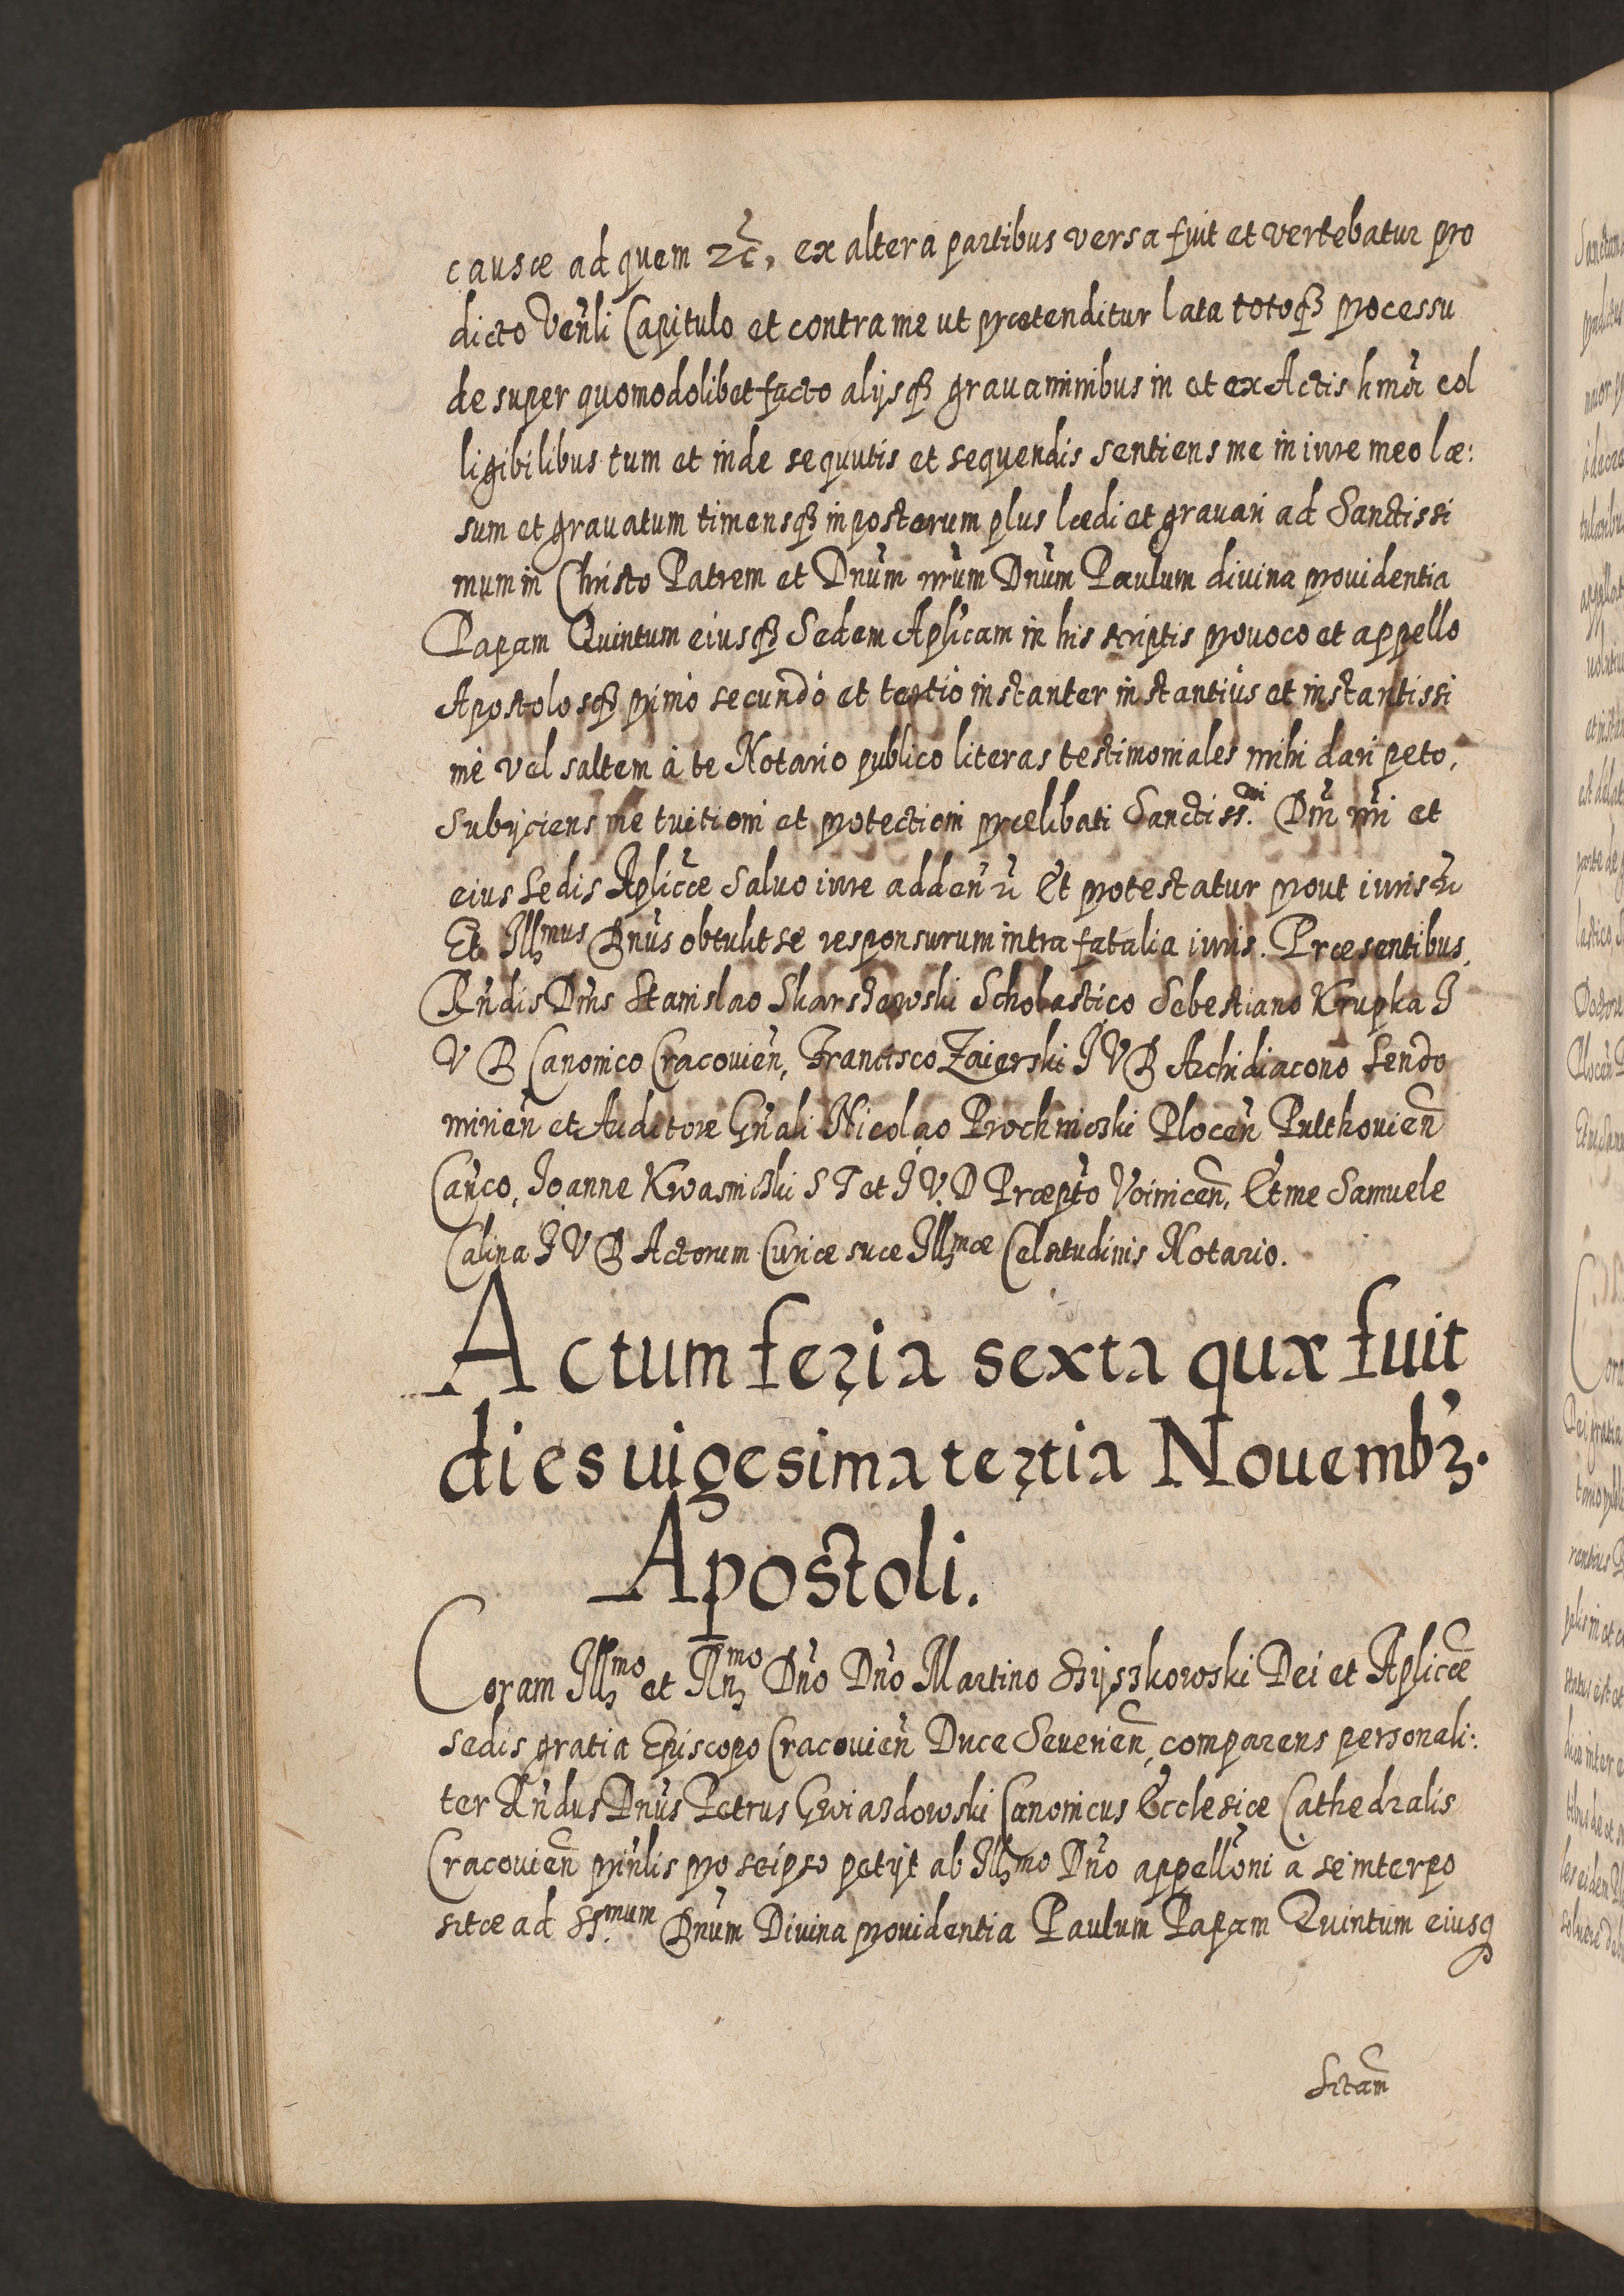 causæ ad quem &c̃, ex altera partibus versa fuit et vertebatur pro
dicto Venl̃i Capitulo et contra me ut prætenditur lata totoqꝫ processu
desuper quomodolibet facto alijsqꝫ grauaminibus in et ex Actis hmõi col
ligibilibus tum et inde sequutis et sequendis sentiens me in iure meo læ:
sum et grauatum timensqꝫ in posterum plus lædi et grauari ad Sanctissi
mum in Christo Patrem et Dnũm nr̃um Dnũm Paulum diuina prouidentia
Papam Quintum eiusqꝫ Sedem Aplicam in his scriptis prouoco et appello
Apostolosqꝫ primò secundò et tertiò instanter instantiùs et instantissi
mè vel saltem à te Notario publico literas testimoniales mihi dari peto,
Subijciens me tuitioni et protectioni prælibati Sanctiss.mi Dnĩ nr̃i et
eius Sedis Aplicæ Saluo iure adden̄ &c̃ Et protestatur prout iuris &c̃
Et Illmus Dnũs obtulit se responsurum intra fatalia iuris. Præsentibus,
Rñdis Dnĩs Stanislao Skarszewski Scholastico Sebestiano Krupka I
V D Canonico Cracouień, Francisco Zaierski I V D Archidiacono Sendo
mirień et Auditore Gñali Nicolao Prochnicski Ploceń Pulthouień
Cañco, Joanne Kwasniczki S T et I V. D Præpto Voinicen, Et me Samuele
Calina I V D Actorum Curiæ suæ Illmæ Celsitudinis Notario.
Actum feria sexta quæ fuit
dies uigesima tertia Nouembꝫ.
Apostoli.
Coram Illmo et Rnmo Dño Dño Martino Szyszkowski Dei et Aplicæ
Sedis gratia Episcopo Cracouień Duce Seuerień, comparens personali:
ter Rñdus Dnũs Petrus Gwiazdowski Canonicus Ecclesiæ Cathedralis
Cracouień prin̄lis pro seipso petijt ab Illmo Dño appellõni à se interpo
sitæ ad SS.mum Dnũm Diuina prouidentia Paulum Papam Quintum eiusq
Sctam